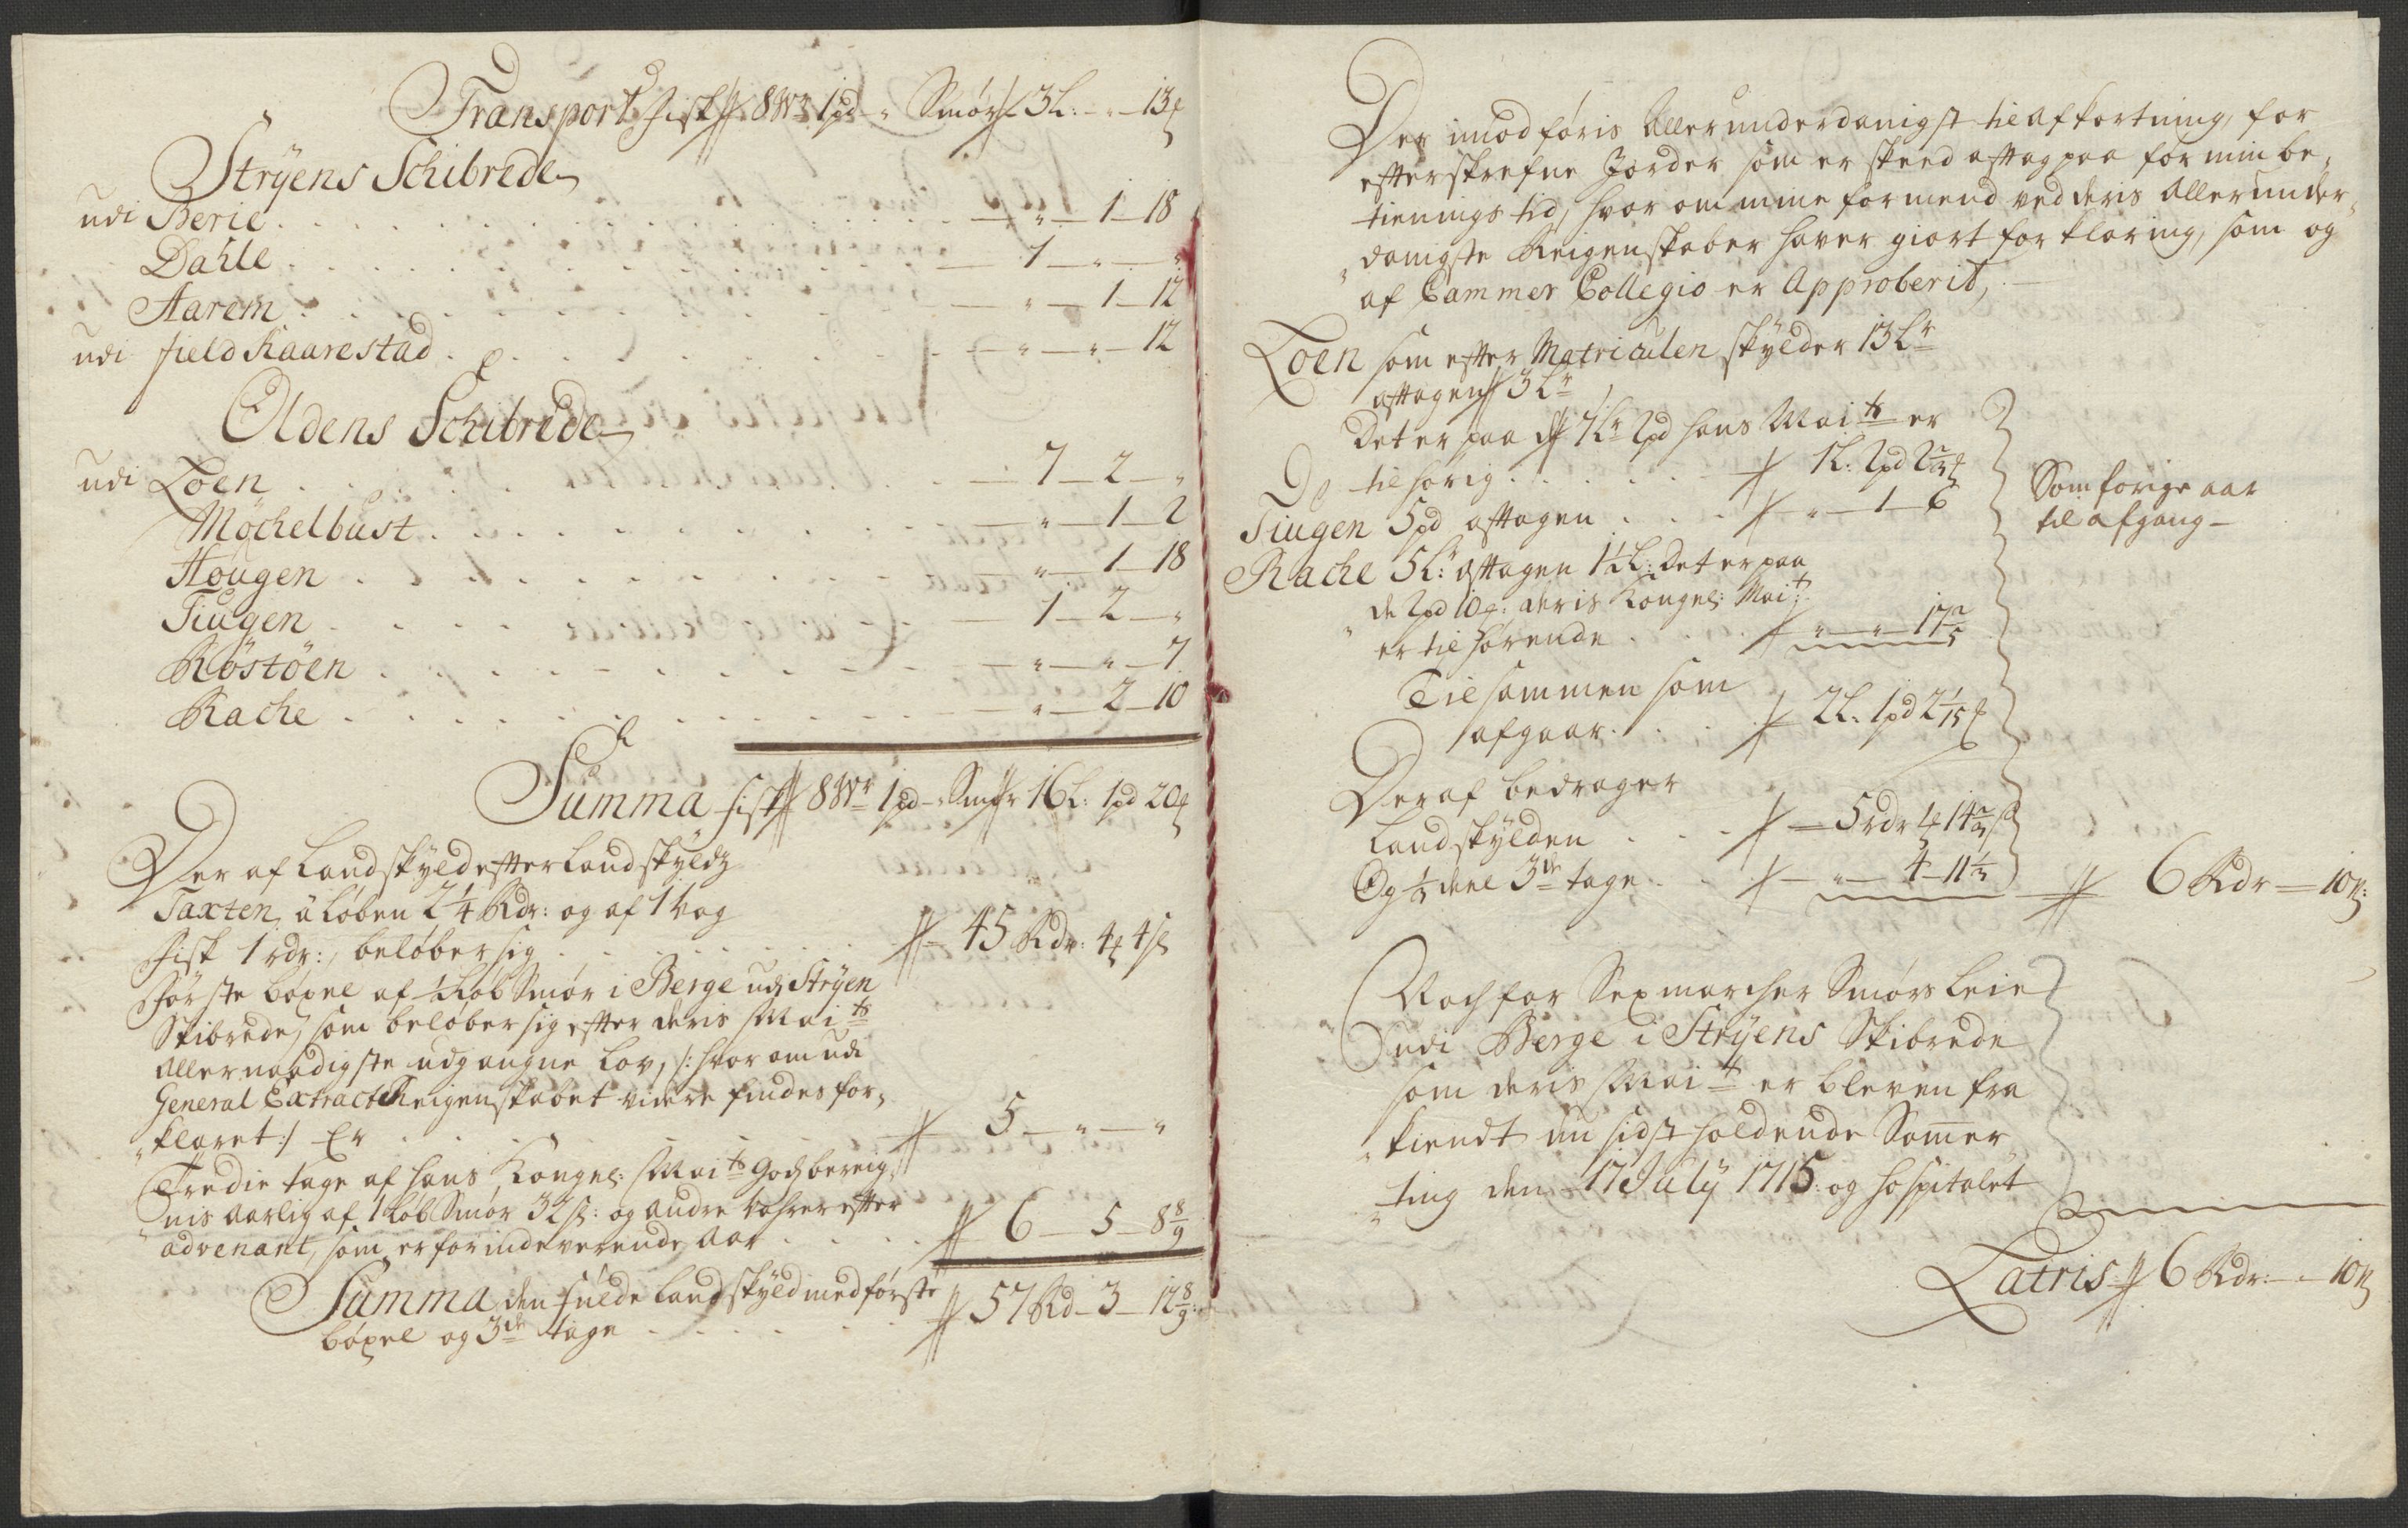 Transport Fisk 8 Wr 1 pd - " Smør 3 L: - " - 13
Strÿens Schibrede
udi Berie . . . " - 1 - 18
Dahle . . . 1 - " - "
Aarem . . . " - 1 - 12
udi field Kaarestad . . . " - " - 12
Oldens Schibrede
udi Loen . . . 7 - 2 - "
Möchelbust . . . " - 1 - 2
Hougen . . . " - 1 - 18
Tiugen . . . 1 - 2 - "
Röstöen . . . " - " - 7
Rache . . . " - 2 - 10
Summa fisk 8 Wr 1 pd - " Smør 16 L: 1 pd 20
Der af Landskyld effter Landskyldz
Taxten, á Løben 2 1/4 Rdr: og af 1 Vog
Fisk 1 rdr:, beløber sig . . . 45 Rdr: 4 4 ß
Første böxel af 1/2 Løb Smør i Berge udi Strÿen
Skibrede, som beløber sig effter deris Maits
allernaadigste udgangne Lov, /: hvorom udi
General Extract Reigenskabet videre findes for„
„klaret :/ Er . . . 5 - " - "
Tredie tage af hans Kongel: Maits Godz bereig„
„nis aarlig af 1 Løb Smør 32 ß: og andre Vahrer effter
advenant, som er for indeverende Aar . . . 6 - 5 - 8 8/9
Summa den fulde Landskyld med første
böxel og 3de tage . . . 57 Rd - 3 - 12 8/9
Der imod føris Allerunderdanigst til afkortning, for
effterskrefne Jorder som er skeed afftag paa for min be„
tienings tid, hvor om mine formend ved deris Allerunder„
„danigste Reigenskaber haver giort forklaring, som og
af Cammer Collegio er Approberit,
Loen som effter Matriculen skylder 13 Lr
afftagen 3 Lr
Det er paa de 7 Lr 2 pd hans Maits er
tilhörig . . . 1 L: 2 pd 2 2/3
Tiugen 5 pd afftagen . . . " - 1 - 6
Som forige aar
til afgang -
Rache 5 L: afftagen 1 1/2 L: Det er paa
de 2 pd 10 deris Kongel: Mait:
er tilhørende . . . " - " - 17 2/5
Tilsammen som
afgaar . . . 2 L: 1 pd 2 1/15
Deraf bedrager
Landskylden . . . 5 rdr 4 14 2/3 ß
Og 1/3 deel 3de tage . . . " - 4 - 11 1/3 6 Rdr - 10 ß:
Noch for Sex marcher Smørs Leie
udi Berge i Strÿens Skibrede
som deris Mait er bleven fra
„kiendt nu sidst holdende Somer
„ting den 17 Julÿ 1715: og hospitalet
Latris 6 Rdr: - " - 10 ß